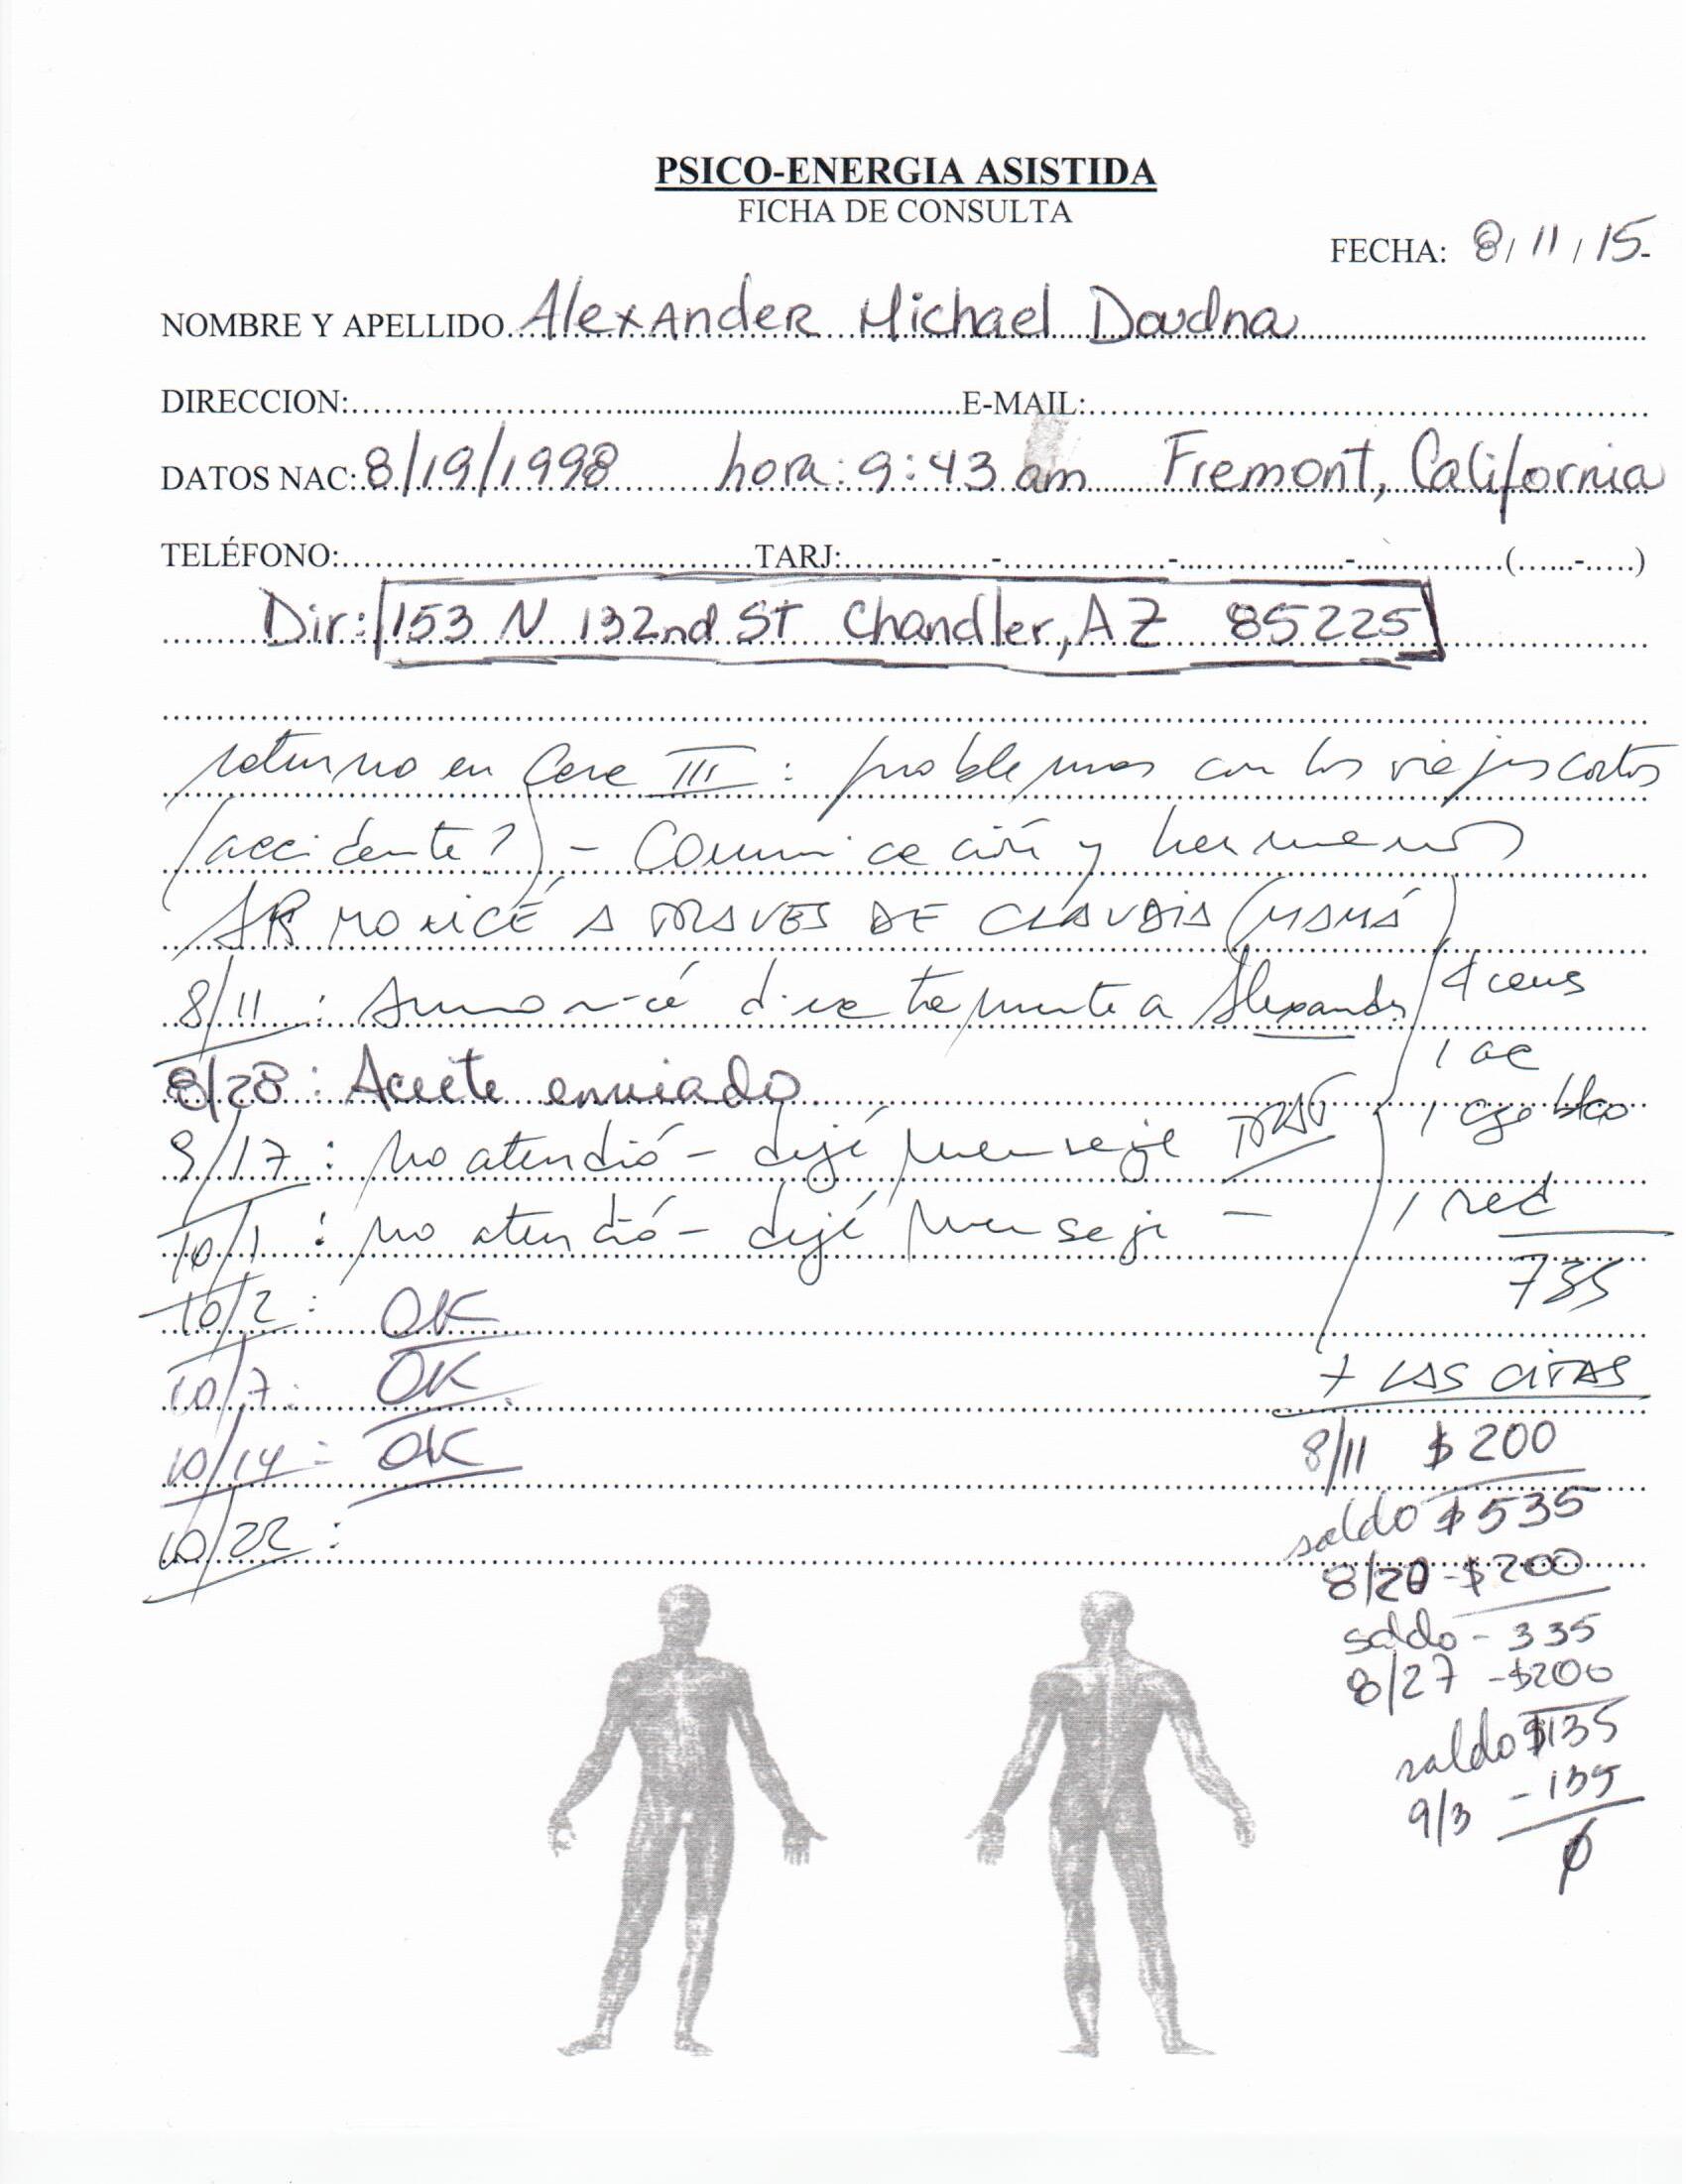 PSICO-ENERGIA ASISTIDA
FICHA DE CONSULTA
FECHA: 8/11/15-
NOMBRE Y APELLIDO Alexander Michael Doudna
DIRECCION: E-MAIL:
DATOS NAC: 8/19/1998 hora: 9:43 am Fremont, California
TELÉFONO: TARJ: - - - ( - )
Dir: 153 N 132nd ST Chandler, AZ 85225
saturno en Casa III : problemas con los viajes cortos
(accidente?) - Comunicación y hermanos
ARMONICÉ A TRAVES DE CLAUDIA (MAMÁ)
8/11 : Armonicé directamente a Alexander
4 ceus
1 ac
8/28 : Aceite enviado
1 bco
9/17 : no atendió - dejé mensaje
1 red
10/1 : no atendió - dejé mensaje -
735
10/2 : OK
+ LAS CITAS
10/7 : OK
8/11 $ 200
10/14 : OK
saldo $ 535
10/22 :
8/20 - $200
saldo - 335
8/27 - $200
saldo $135
9/3 - 135
0